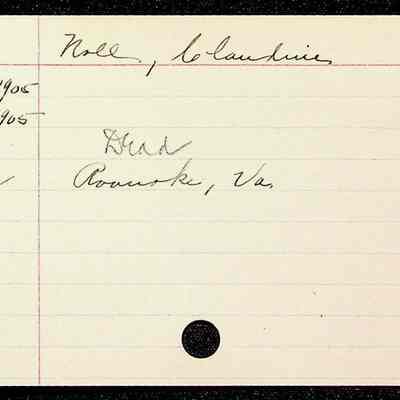 Noll, Claudine
1905
1905
Dead
Roanoke, Va.